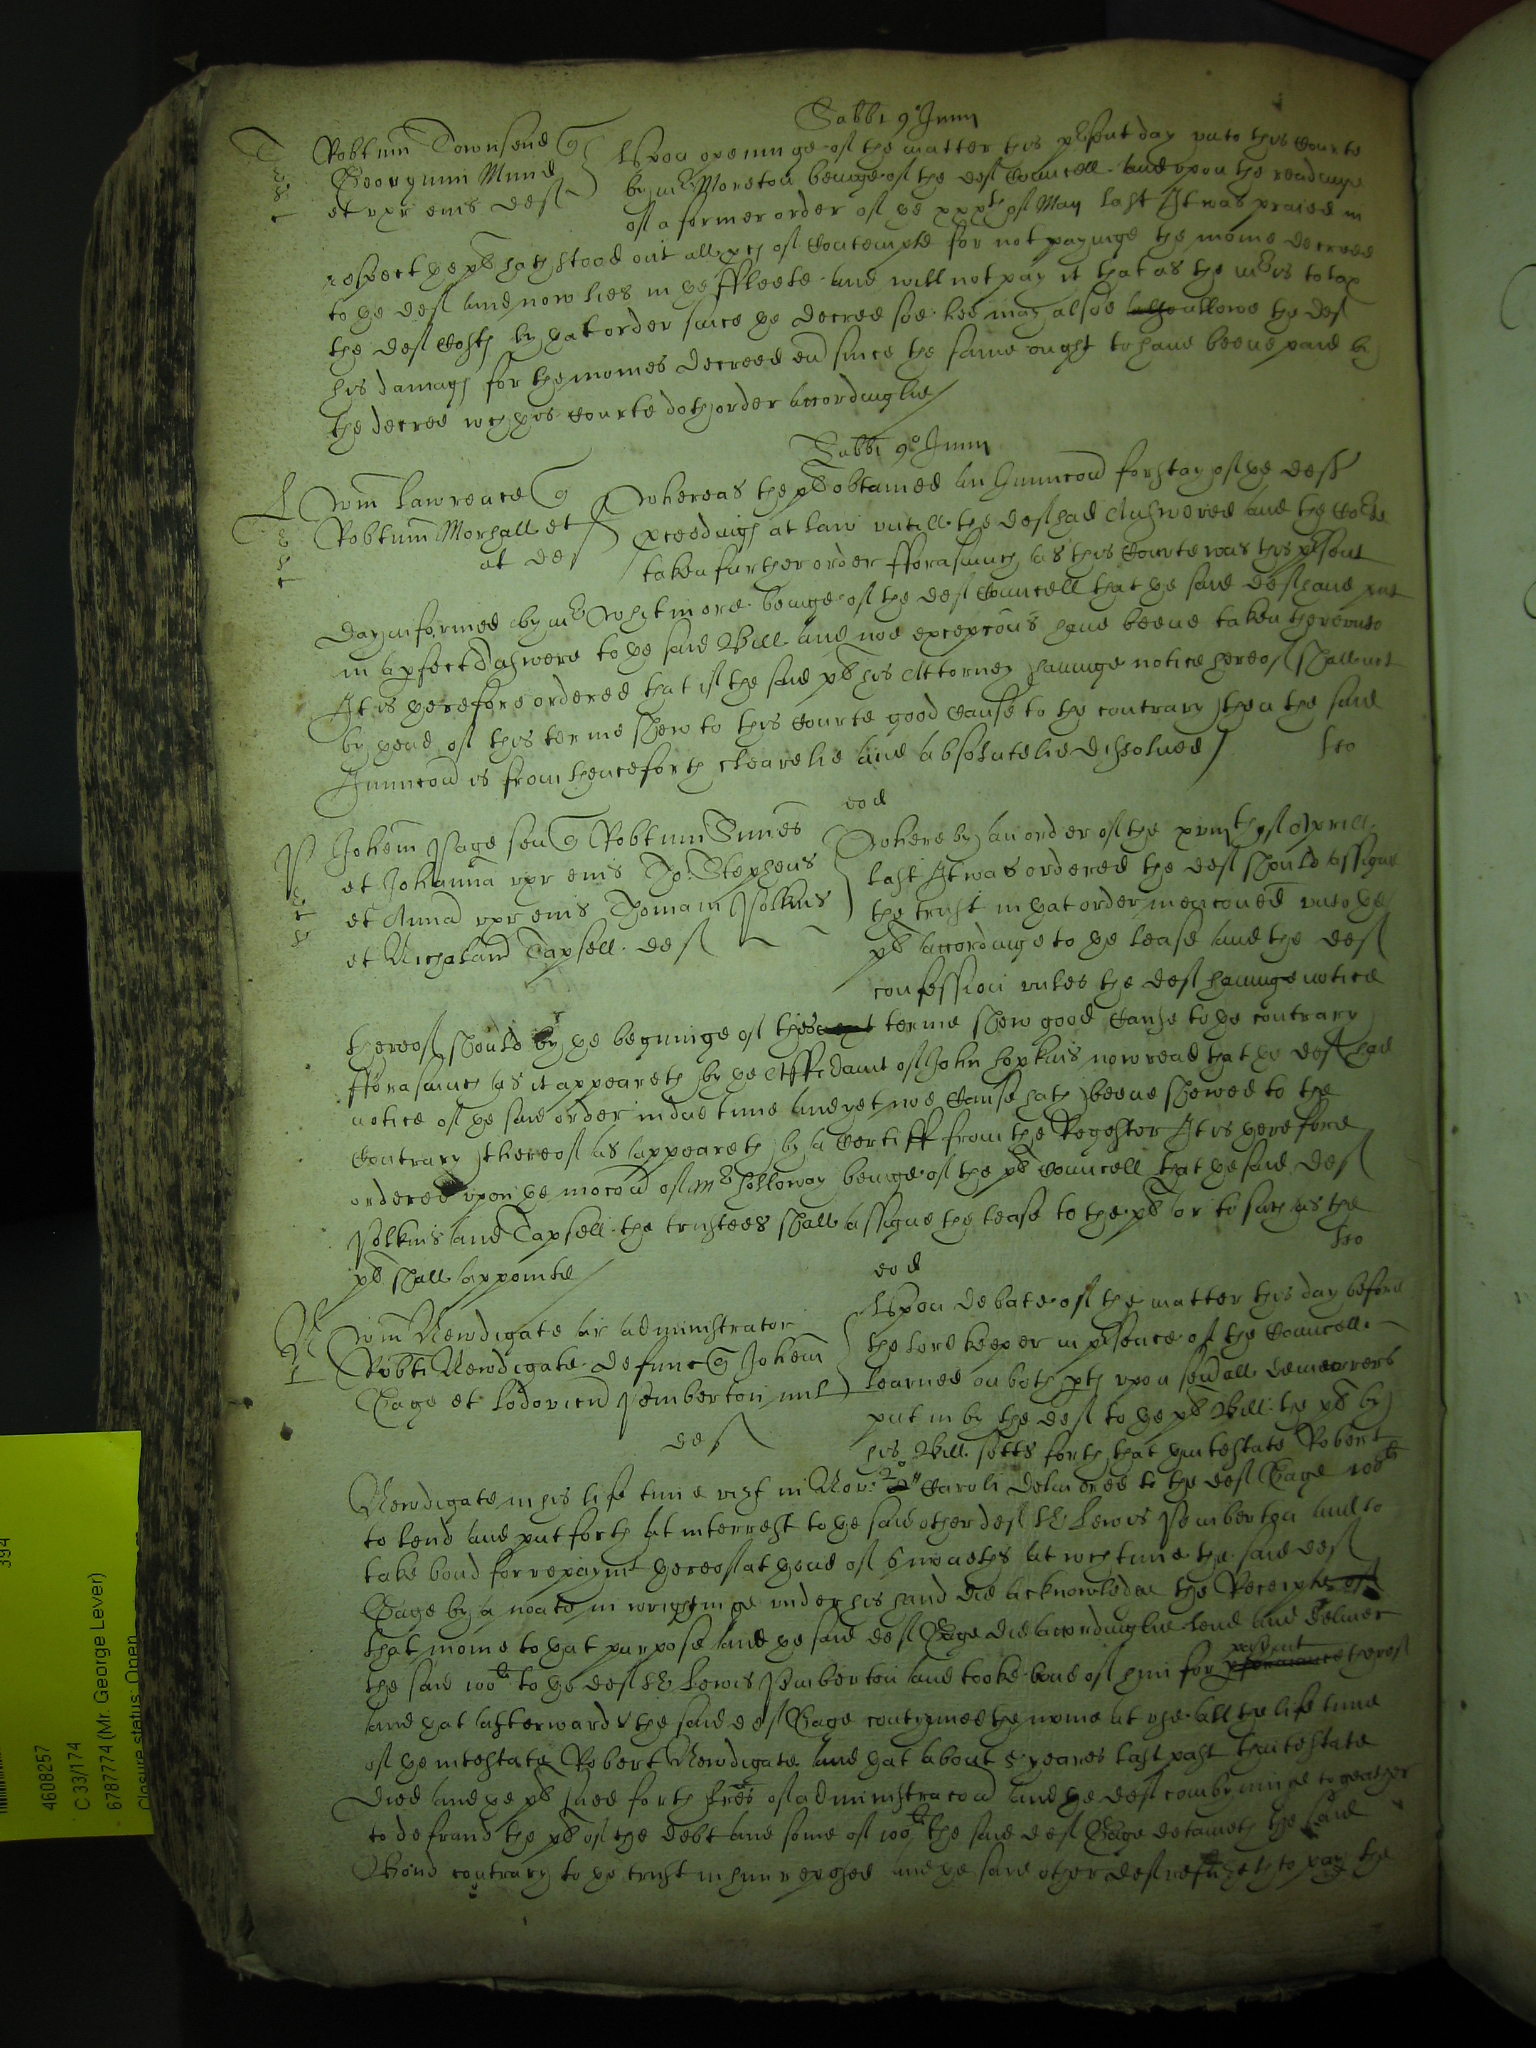 Sabbi 9° Junij
Robtum Townsend q
Georgium Mund
et uxor eius def
Upon openinge of the matter this pñt day unto this Courte
by Mr Moreton beinge of the def Councell and upon the readinge
of a former order of ye xxxth of May last It was praied in
respect ye pl hath stood out all pces of Contempte for not payinge the monie decreed
to ye def and now lies in ye ffleete and will not pay it that as the Mr is to tax
the def Costs by yat order since ye decree soe hee may alsoe allowe the def
his damags for the monies decreed ed since the same ought to have beene paid by
the decree wch this Courte doth order accordinglie
Sabbi 9° Junij
Wm Lawrence q
Robtum Marshall et
al def
Whereas the pl obtained an Iniunccon for stay of ye defts
pceedings at law untill the def had Answered and the Courte
taken further order fforasmuch as this Courte was this pñt
day informed by Mr Whitmore beinge of the def Councell that ye said def have put
in a pfect Answere to ye said Bill and noe excepcons have beene taken thereunto
It is therefore ordered that if the said pl his Attorney havinge notice hereof shall not
by yend of this terme shew to this Courte good Cause to the contrary then the said
Iniunccon is from henceforth clearelie and absolutelie dissolved
eod
Johem Page sen q Robtum
et Johanna uxor eius Jo: Stephens
et Anna uxor eius Thomam Polkins
et Tapsell def
Whereby an order of the xviijth of Aprill
last It was ordered the def should assigne
the trust in yat order mencioned unto ye
pl accordinge to ye lease and the def
confession unles the def havinge notice
thereof should by ye begininge of this terme shew good Cause to ye contrary
fforasmuch as it appeareth by ye Affidavit of John Hopkins now read that ye def had
notice of ye said order in due time and yet noe Cause hath beene shewed to the
Contrary thereof as appeareth by a Certiff from the Register It is therefore
ordered upon ye mocon of Mr Holloway beinge of the pl Councell that ye said def
Polkins and Tapsell the trustees shall assigne the lease to the pl or to such as the
pl shall appointe
eod
Wm Newdigate ar administrator
Robti Newdigate defunct q Johem
Gage et Lodovicu Pemberton mil
def
Upon debate of the matter this day before
the Lord keeper in pñce of the Councell
learned on both pts upon sevall demurrers
put in by the def to ye pl Bill the pl by
his Bill setts forth that yintestate Robert
Newdigate in his life time vizt in Nov: 2° Caroli delivered to the def Gage 100li
to lend and put forth at interrest to ye said other def Sr Lewis Pemberton and to
take bond for repaymt thereof at yend of 6 moneths at wch time the said def
Gage by a noate in wrightinge under his hand did acknowledge the Receipte of
that monie to yat purpose and ye said def Gage did accordinglie lend and deliver
the said 100li to ye def Sr Lewis Pemberton and tooke bond of him for paymt thereof
and yat afterwards the said def Gage contynued the monie at use all the life time
of ye intestate Robert Newdigate and yat about 5 yeares last past thintestate
died and ye pl sued forth lres of administracon and ye def combyninge togeather
to defraud the pl of the debt and some of 100li the said def Gage detaineth the said
Bond contrary to ye trust in him reposed and ye said other def refuseth to pay the
394
4608257
C 33/174
6787774 (Mr. George Lever)
Closure status: Open